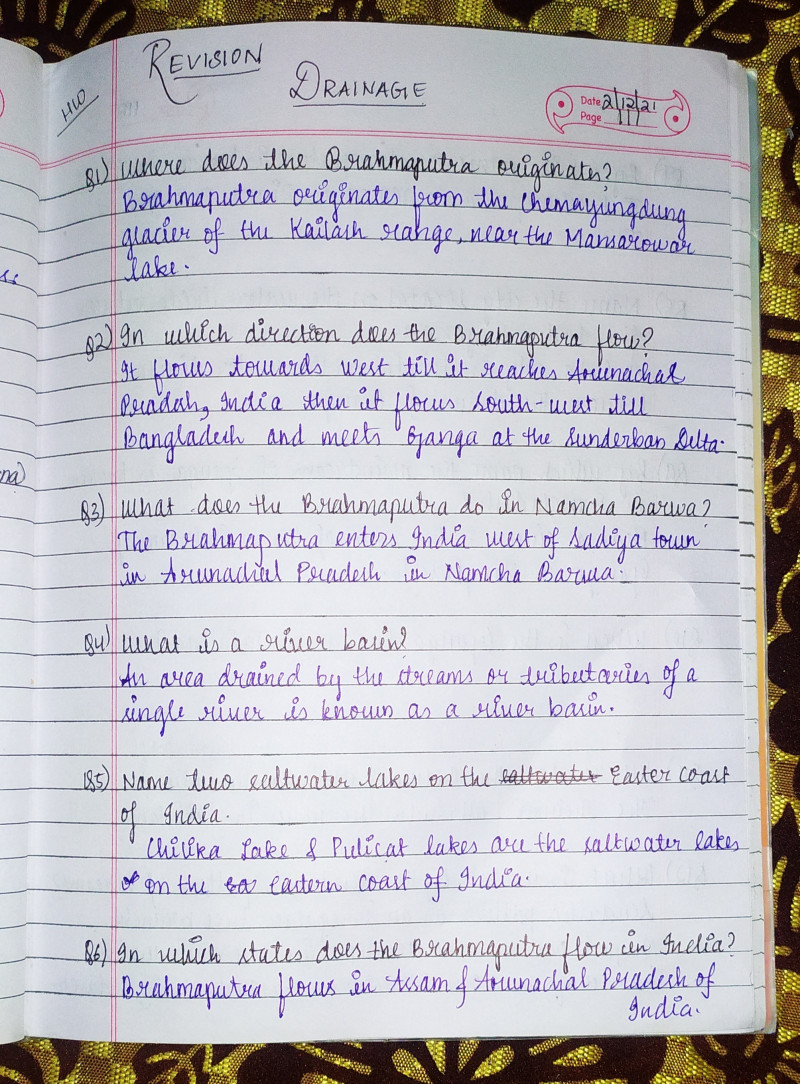 REVISION
DRAINAGE
HW
Date 2/12/21
Page 111
Q1) Where does the Brahmaputra originate?
Brahmaputra originates from the Chemayungdung
glacier of the Kailash range, near the Mansarowar
lake.
Q2) In which direction does the Brahmaputra flow?
It flows towards west till it reaches Arunachal
Pradesh, India then it flows South-west till
Bangladesh and meets Ganga at the Sunderban Delta.
Q3) What does the Brahmaputra do in Namcha Barwa?
The Brahmaputra enters India west of Sadiya town
in Arunachal Pradesh in Namcha Barwa.
na)
Q4) What is a river basin?
An area drained by the streams or tributaries of a
single river is known as a river basin.
Q5) Name two saltwater lakes on the saltwater Easter coast
of India.
Chilika Lake & Pulicat lakes are the saltwater lakes
on the ea eastern coast of India.
Q6) In which states does the Brahmaputra flow in India?
Brahmaputra flows in Assam & Arunachal Pradesh of
India.